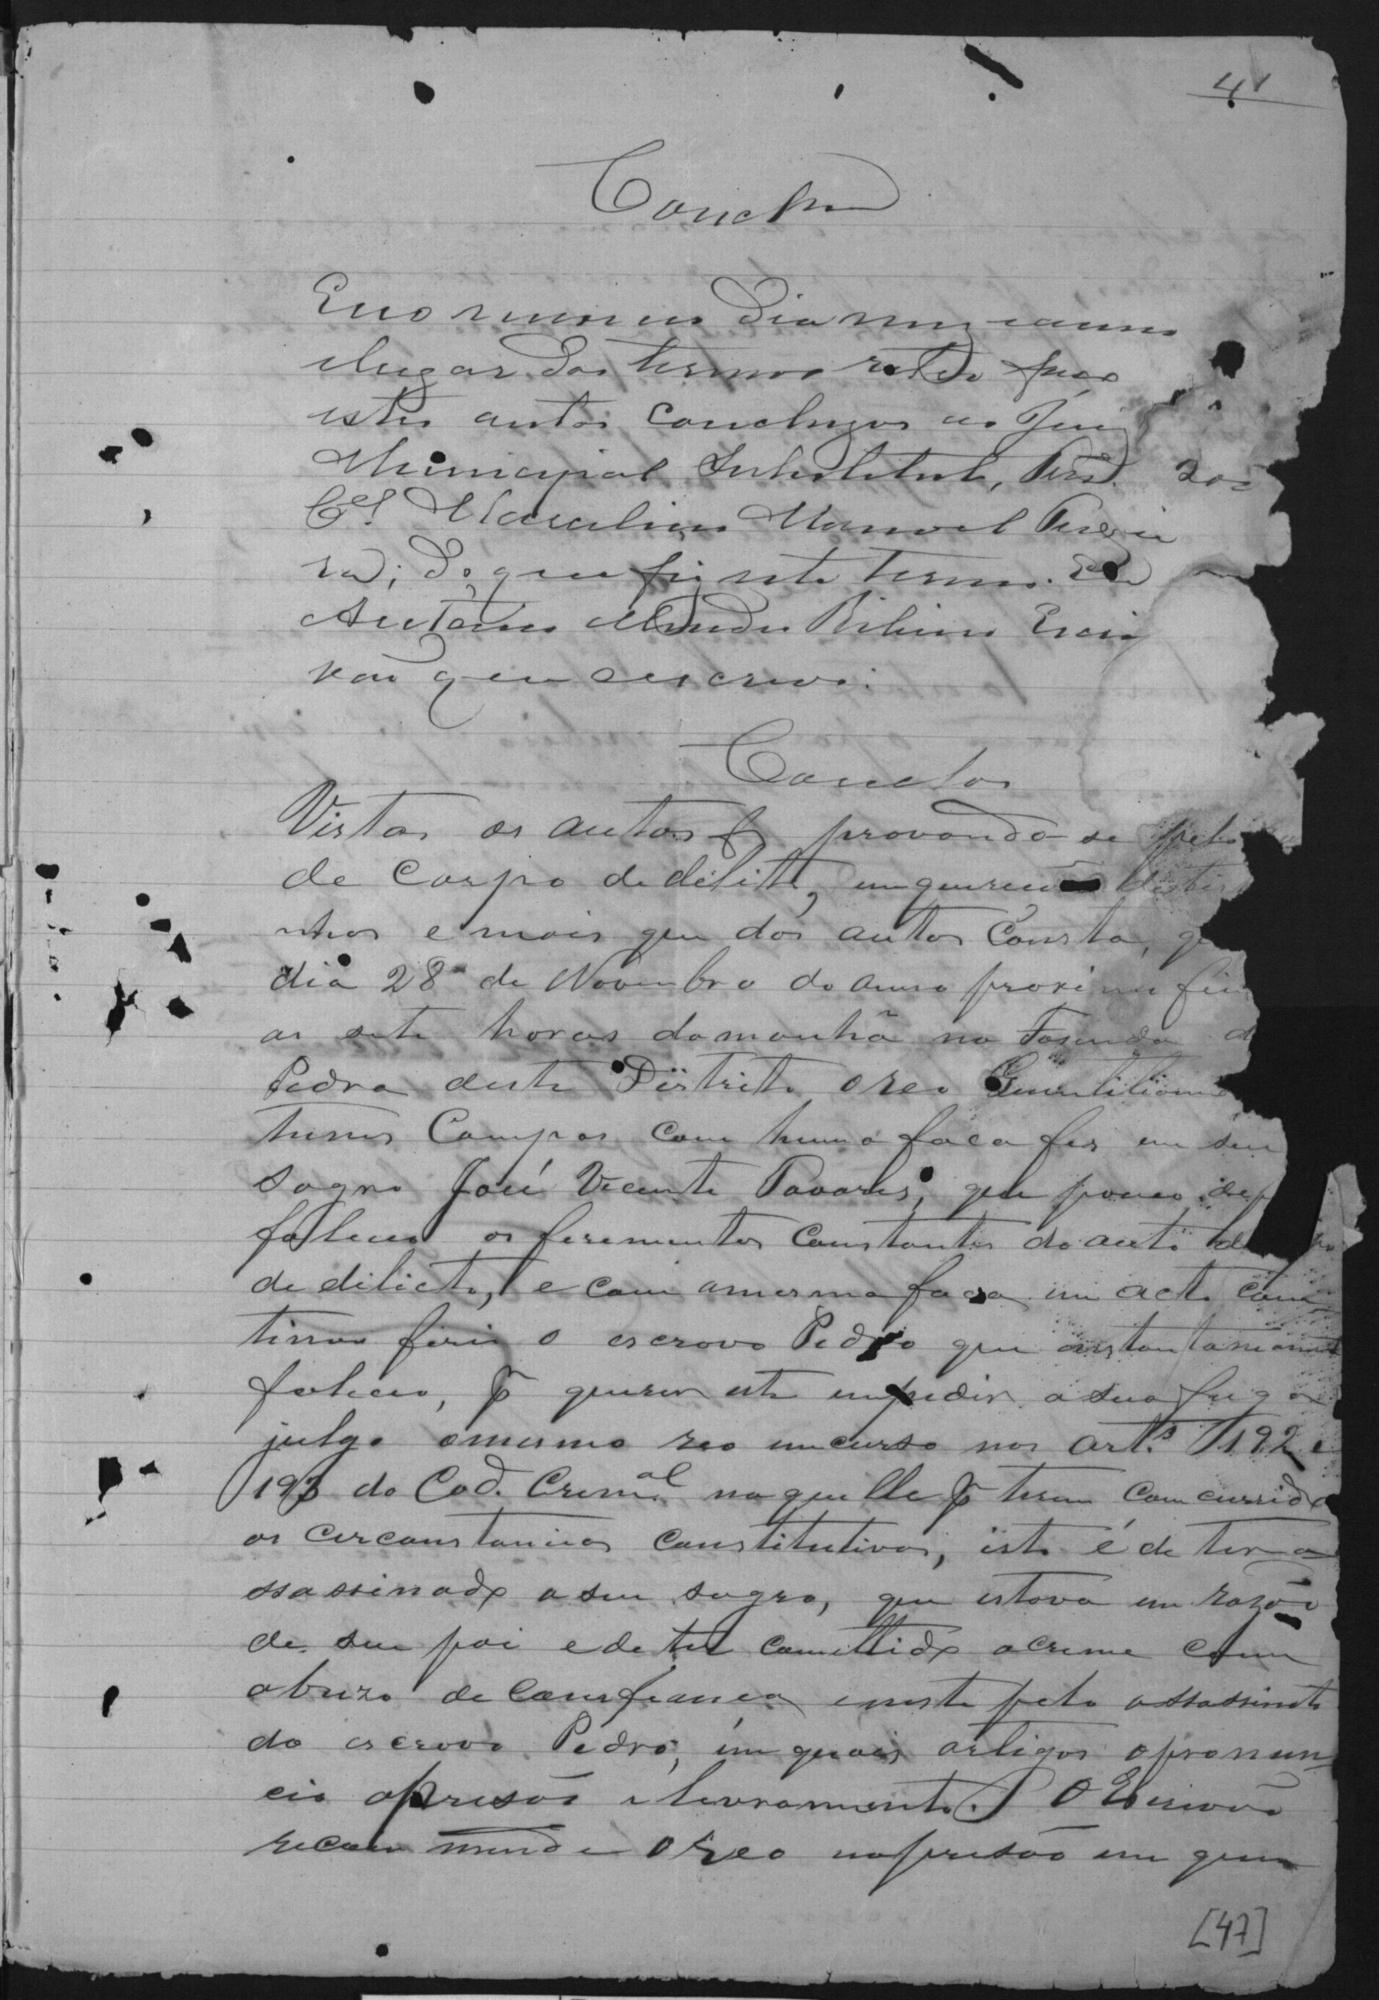 41
Conclm
Eno mesmo dia mez eanno
elugar dos termos retro faço
estes autos concluzos ao Juiz
Municipal Substituto,
Cel. Marcelino Manoel Perei
ra; do que fiz este termo. Eu
Antonio Mendes Ribeiro Escri
vão que escrevi.
Conclos
Vistos os autos & provando-se pelo
de Corpo de delito, testi
nhas e mais que dos autos Consta, q
dia 28 de Novembro do anno proximo fin
as sete horas damanhã na Fasenda d
Pedra deste Districto o reo
tunes Campos com huma faca fes em seu
sogro José Vicente Tavares, que pouco dep
faleceu os ferimentos constantes do auto de
de delicto, e com amesma faca em acto con
tinuo feriu o escravo Pedro que instantaniame
faleceu, por querer este impedir a sua fuga
julgo omesmo reo incurso nos arts. 192 e
193 do Cod. Crimal naquelle por terem concurrido
as circonstancias constitutivas, isto é de ter a
ssassinado a seu sogro, que estava em razão
de seu pai e de ter comettido o crime com
abuzo de confiança e neste pelo assassinato
do escravo Pedro, em quais artigos o pronun-
cio aprisão e livramento. O Escrivão
recommende o reo naprisão em que
[47]